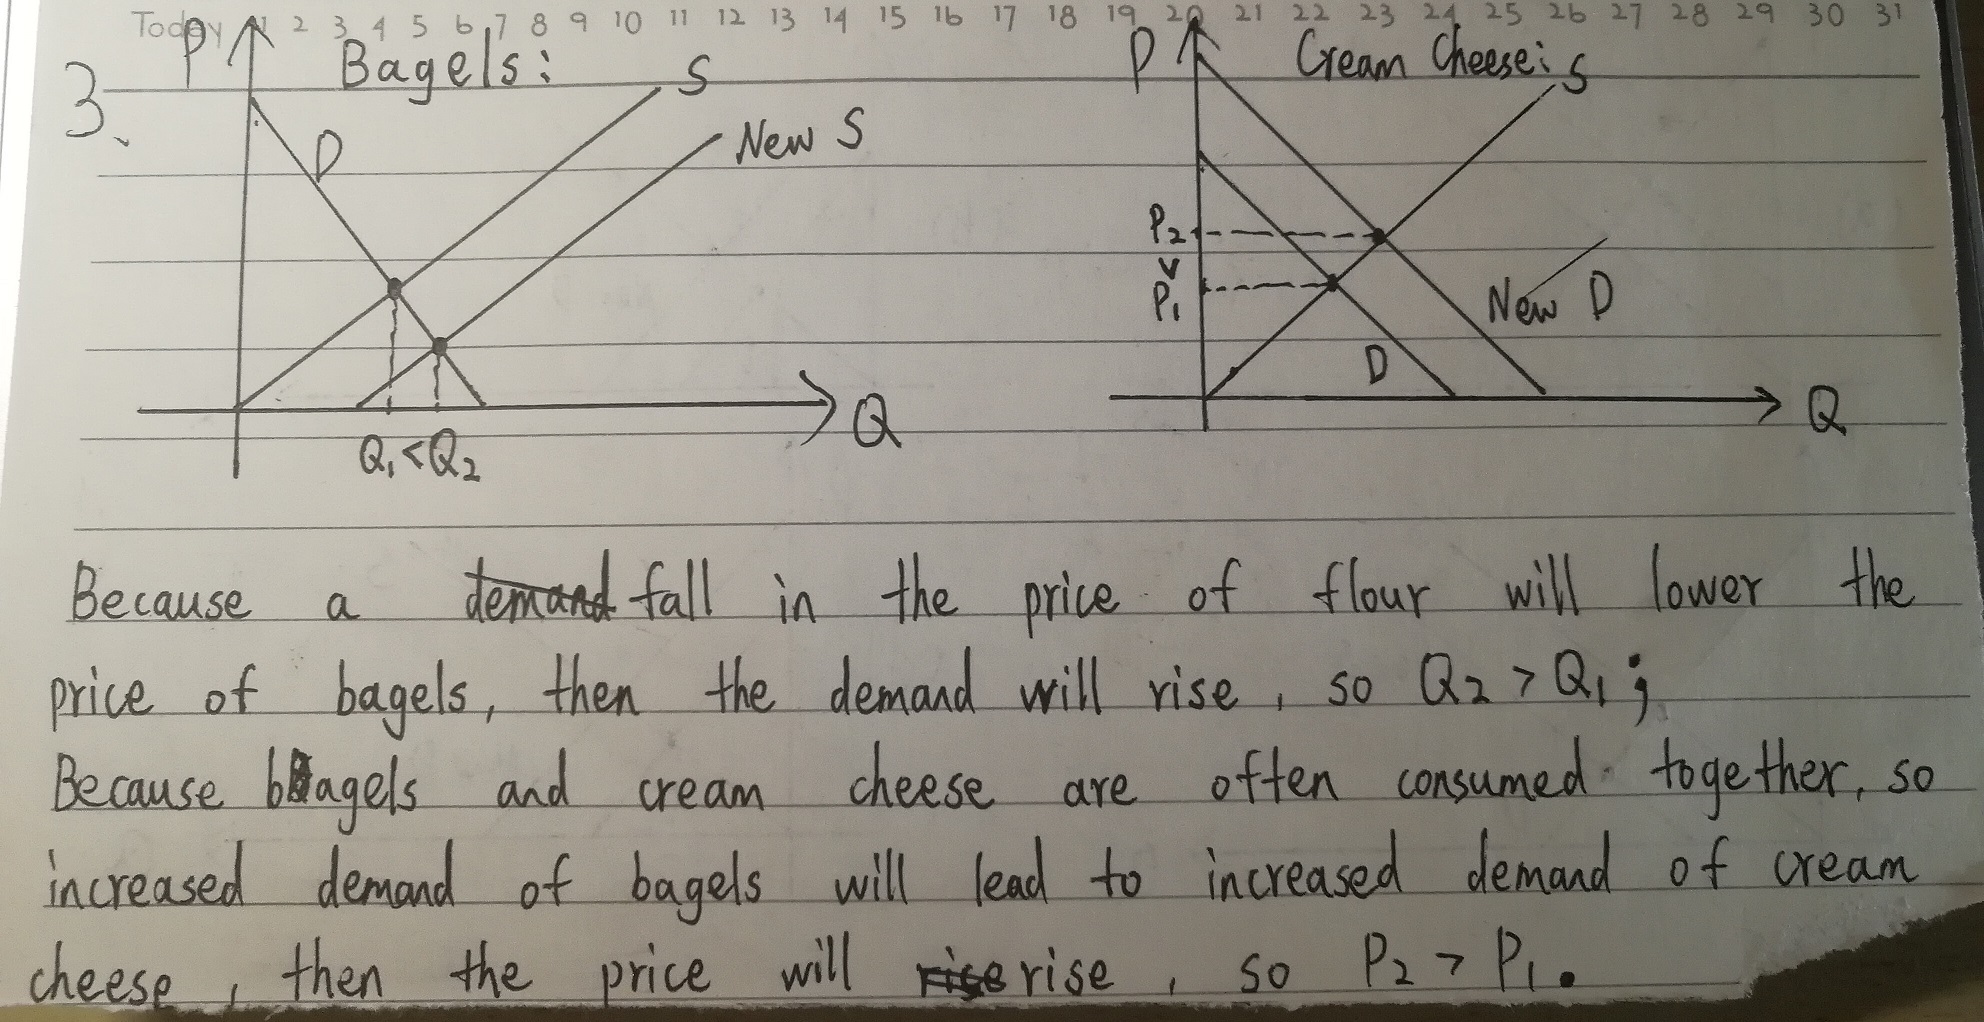 Today 1 2 3 4 5 6 7 8 9 10 11 12 13 14 15 16 17 18 19 20 21 22 23 24 25 26 27 28 29 30 31
3.
P Bagels: S
D
New S
Q
Q₁ < Q₂
P Cream Cheese: S
P₂
v
P₁
New D
D
Q
Because a demand fall in the price of flour will lower the
price of bagels, then the demand will rise, so Q₂ > Q₁;
Because bagels and cream cheese are often consumed together, so
increased demand of bagels will lead to increased demand of cream
cheese, then the price will rise rise, so P₂ > P₁.